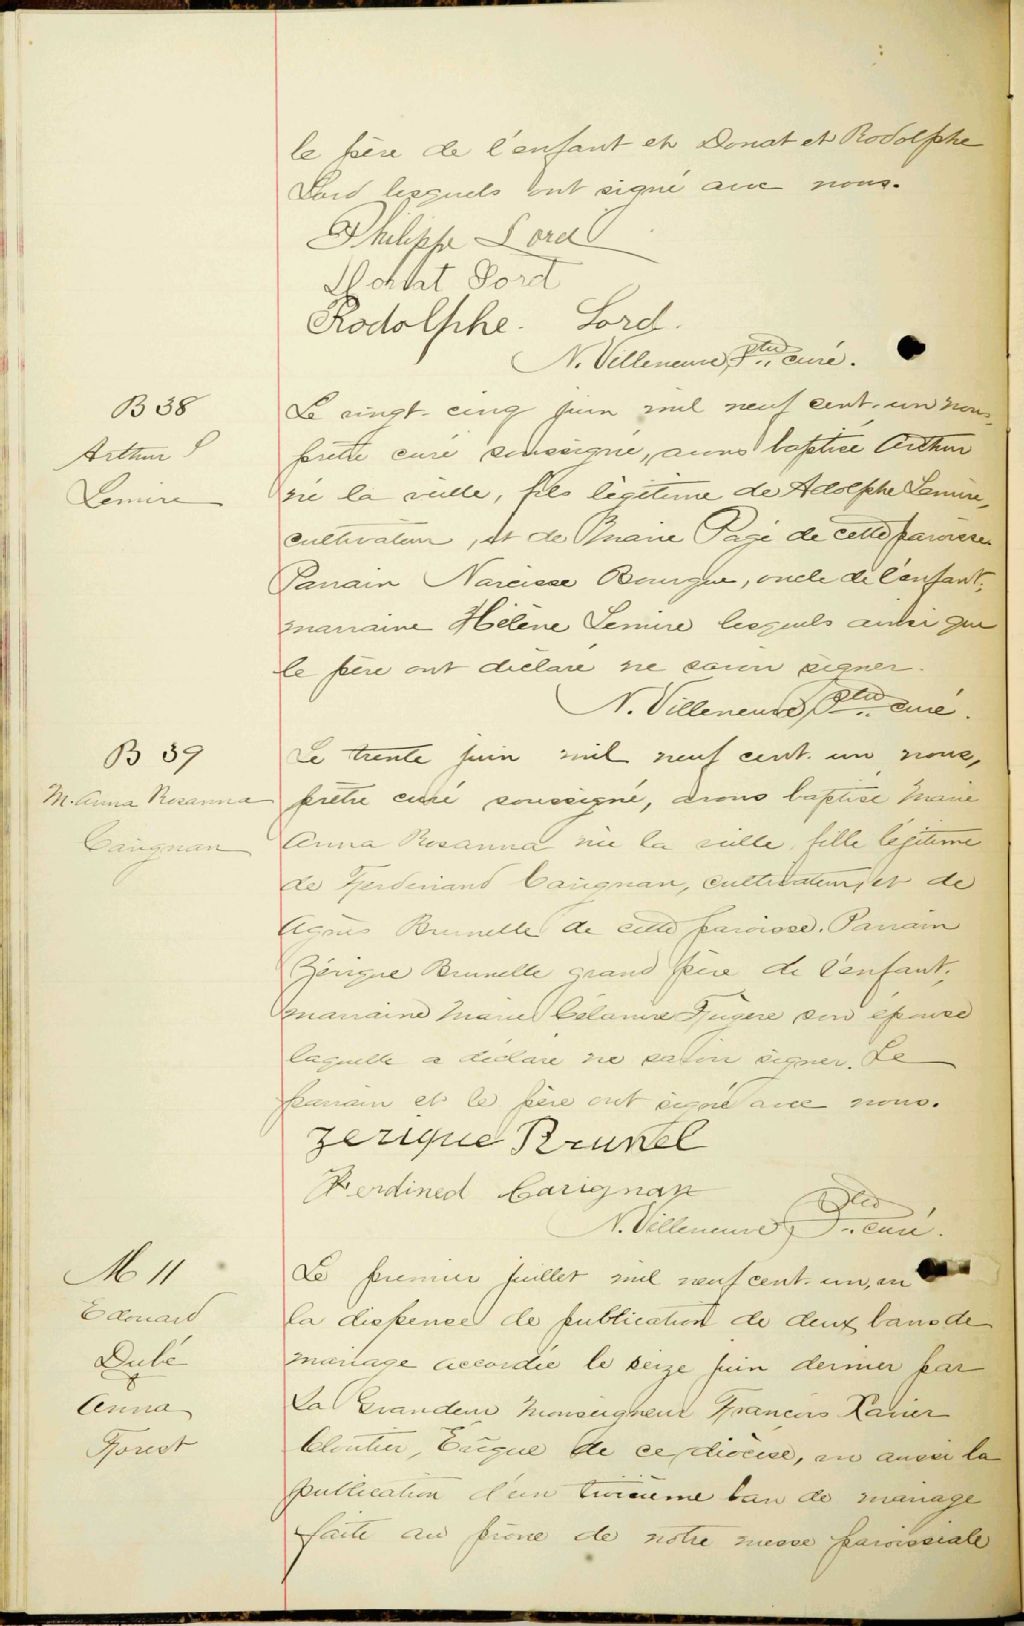 le père de l'enfant et Donat et Rodolphe
Lord lesquels ont signé avec nous.
Philippe Lord
Donat Lord
Rodolphe. Lord.
N. Villeneuve, Ptre curé.
B 38
Arthur
Lemire
Le vingt-cinq juin mil neuf cent-un nous,
prêtre curé soussigné, avons baptisé Arthur
né la veille, fils légitime de Adolphe Lemire,
cultivateur, et de Marie Pagé de cette paroisse.
Parrain Narcisse Bourque, oncle de l'enfant;
marraine Hélène Lemire lesquels ainsi que
le père ont déclaré ne savoir signer.
N. Villeneuve, Ptre curé.
B 39
M. Anna Rosanna
Carignan
Le trente juin mil neuf cent-un nous,
prêtre curé soussigné, avons baptisé Marie
Anna Rosanna née la veille, fille légitime
de Ferdinand Carignan, cultivateur, et de
Agnès Brunelle de cette paroisse. Parrain
Zérique Brunelle grand père de l'enfant;
marraine Marie Célanire Fugère son épouse
laquelle a déclaré ne savoir signer. Le
parrain et le père ont signé avec nous.
Zerique Brunel
Ferdined Carignan
N. Villeneuve, Ptre curé.
M 11
Edouard
Dubé
&
Anna
Forest
Le premier juillet mil neuf cent-un, vu
la dispense de publication de deux bans de
mariage accordée le seize juin dernier par
Sa Grandeur Monseigneur François Xavier
Cloutier, Evêque de ce diocèse, vu aussi la
publication d'un troisième ban de mariage
faite au prône de notre messe paroissiale